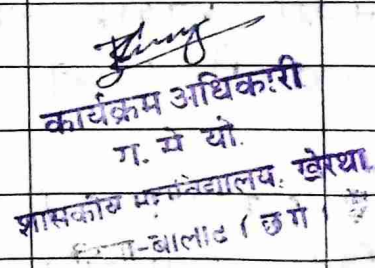 कार्यक्रम अधिकारी
ग. मे यो.
शासकीय महाविद्यालय, खेरथा
-बालाद (छ ग)